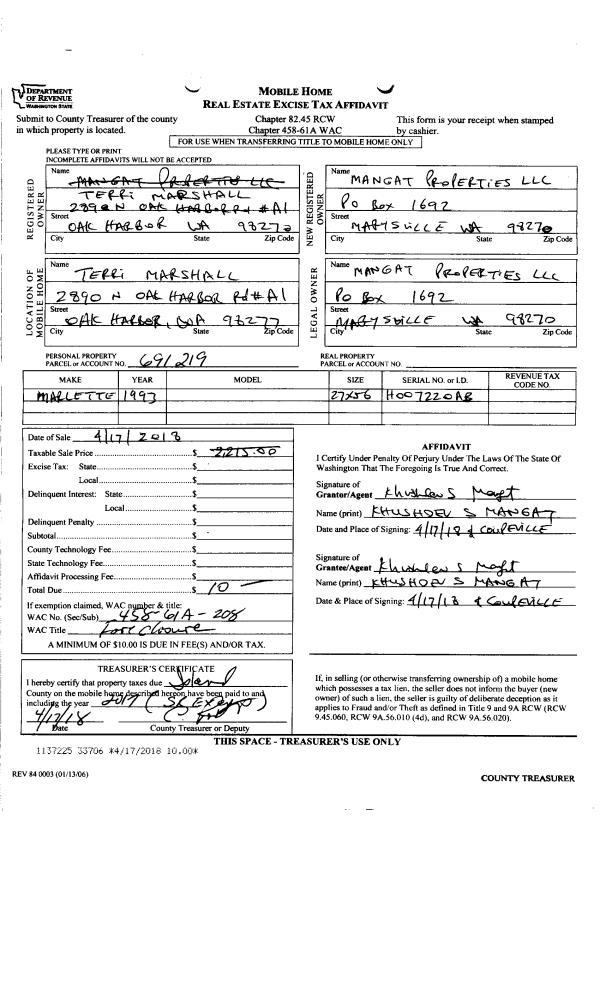 DEPARTMENT
OF REVENUE
WASHINGTON STATE
MOBILE HOME
REAL ESTATE EXCISE TAX AFFIDAVIT
Submit to County Treasurer of the county
in which property is located.
Chapter 82.45 RCW
Chapter 458-61A WAC
This form is your receipt when stamped
by cashier.
FOR USE WHEN TRANSFERRING TITLE TO MOBILE HOME ONLY
PLEASE TYPE OR PRINT
INCOMPLETE AFFIDAVITS WILL NOT BE ACCEPTED
REGISTERED
OWNER
Name
MANGAT PROPERTIES LLC
TERRI MARSHALL
2890 N OAK HARBOR Rd #A1
Street
OAK HARBOR WA 98277
City State Zip Code
NEW REGISTERED
OWNER
Name
MANGAT PROPERTIES LLC
PO Box 1692
Street
MARYSVILLE WA 98270
City State Zip Code
LOCATION OF
MOBILE HOME
Name
TERRI MARSHALL
2890 N OAK HARBOR Rd # A1
Street
OAK HARBOR, WA 98277
City State Zip Code
LEGAL OWNER
Name
MANGAT PROPERTIES LLC
PO Box 1692
Street
MARYSVILLE WA 98270
City State Zip Code
PERSONAL PROPERTY
PARCEL or ACCOUNT NO. 691219
REAL PROPERTY
PARCEL or ACCOUNT NO.
MAKE YEAR MODEL SIZE SERIAL NO. or I.D. REVENUE TAX
CODE NO.
MARLETTE 1993 27x56 H007220AB
Date of Sale 4/17/2018
Taxable Sale Price $ 2,215.00
Excise Tax: State $
Local $
Delinquent Interest: State $
Local $
Delinquent Penalty $
Subtotal $
County Technology Fee $
State Technology Fee $
Affidavit Processing Fee $
Total Due $ 10 —
If exemption claimed, WAC number & title:
WAC No. (Sec/Sub) 458-61A-208
WAC Title Fore Closure
A MINIMUM OF $10.00 IS DUE IN FEE(S) AND/OR TAX.
AFFIDAVIT
I Certify Under Penalty Of Perjury Under The Laws Of The State Of
Washington That The Foregoing Is True And Correct.
Signature of
Grantor/Agent
Name (print) KHUSHDEV S MANGAT
Date and Place of Signing: 4/17/18
Signature of
Grantee/Agent
Name (print) KHUSHDEV S MANGAT
Date & Place of Signing: 4/17/18
TREASURER'S CERTIFICATE
I hereby certify that property taxes due Island
County on the mobile home described hereon have been paid to and
including the year 2017
4/17/18
Date County Treasurer or Deputy
If, in selling (or otherwise transferring ownership of) a mobile home
which possesses a tax lien, the seller does not inform the buyer (new
owner) of such a lien, the seller is guilty of deliberate deception as it
applies to Fraud and/or Theft as defined in Title 9 and 9A RCW (RCW
9.45.060, RCW 9A.56.010 (4d), and RCW 9A.56.020).
THIS SPACE - TREASURER'S USE ONLY
1137225 33706 *4/17/2018 10.00*
REV 84 0003 (01/13/06)
COUNTY TREASURER